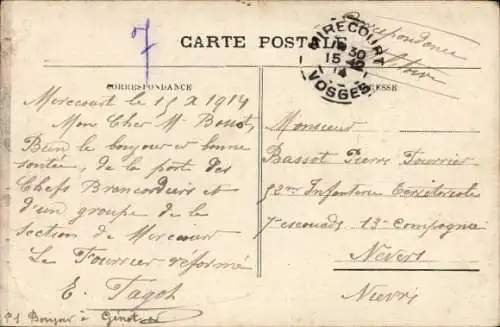 7
CARTE POSTALE
Correspondance
MIRECOURT
15 12
14
VOSGES
CORRESPONDANCE
Mirecourt le 15 X 1914
Mon Cher Mr
Bien le bonjour et bonne
santée, de la part des
Chefs Brancardiers et
d'un groupe de la
section de Mirecourt
Le Fourrier reformé
E. Tagot
P.S Bonjour à
ADRESSE
Monsieur
Bassot Pierre Fourrier
Infanterie Territoriale
7e escouade 13e Compagnie
Nevers
Nievre